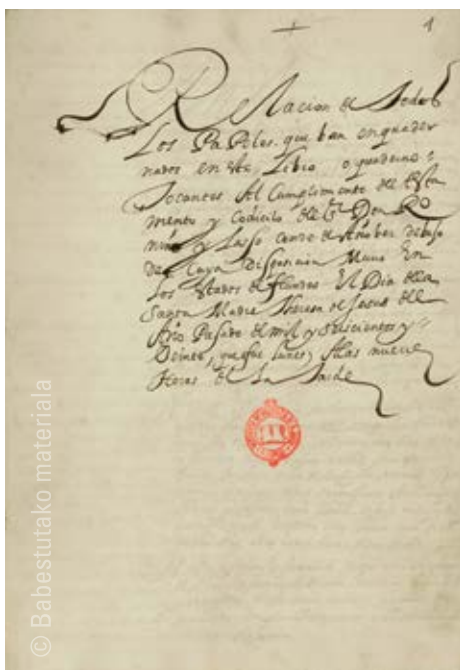 1
Relacion de Todos
Los Papeles que ban enquader
nados en este Libro o quaderno
Tocantes Al Cumplimiento del testa
mento y Codicilo del Sr. Don Ro
y Lasso Conde de Añober debajo
de Cuya Disposicion Murio En
Los estados de flandes El Dia de la
Santa Madre teresa de Jesus del
Año Pasado de mil y seiscientos y
Veinte, que fue lunes, Alas nueve
Horas de la Tarde
© Babestutako materiala